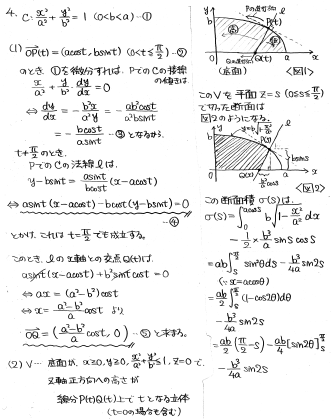 4. C: x²/a² + y²/b² = 1 (0<b<a) …①
(1) OP(t) = (acost, bsint) (0<t≦π/2) …②
のとき ①を微分すれば、PでのCの接線
の傾きは
x/a² + y/b²・dy/dx = 0
⇔ dy/dx = -b²x/a²y = -ab²cost/a²bsint
= -bcost/asint …③ となるから
t≠π/2のとき、
PでのCの法線 l は
y-bsint = asint/bcost (x-acost)
⇔ asint(x-acost)-bcost(y-bsint)=0
…④
とかけ、これは t=π/2 でも成立する。
このとき、lのx軸との交点Q(t)は、
asint(x-acost)+b²sintcost=0
⇔ ax=(a²-b²)cost
⇔ x= a²-b²/a cost より
OQ = (a²-b²/a cost, 0) …⑤ と求まる。
(2) V… 底面が x≧0, y≧0, x²/a²+y²/b²≦1, z=0 で、
z軸正方向への高さが
線分P(t)Q(t)上で t となる立体
(t=0の場合を含む)
y
b
l
P(t)
O
Q(t)
a
x
(底面)
<図1>
このVを平面 z=s (0≦s≦π/2)
で切った断面は
図2のようになる。
y
b
y=b√1-x²/a²
l
P(s)
bsins
O
a
x
<図2>
この断面積 σ(s)は、
σ(s)=∫₀^acoss b√1-x²/a² dx
-1/2・b²/a sins coss
=ab∫ₛ^π/2 sin²θdθ - b³/4a sin2s
(∵ x=acosθ)
=ab/2∫ₛ^π/2 (1-cos2θ)dθ
-b³/4a sin2s
=ab/2(π/2-s)-ab/4[sin2θ]ₛ^π/2
-b³/4a sin2s